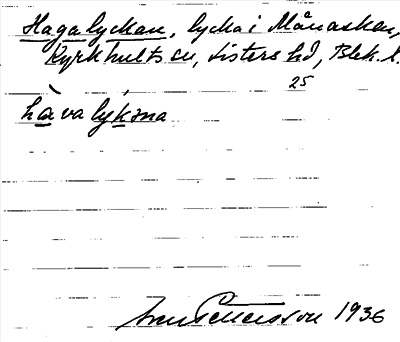 Hagalyckan, lycka i Månasken,
Kyrkhults sn, Listers hd, Blek. l.
25
hàvalýkəna
1936